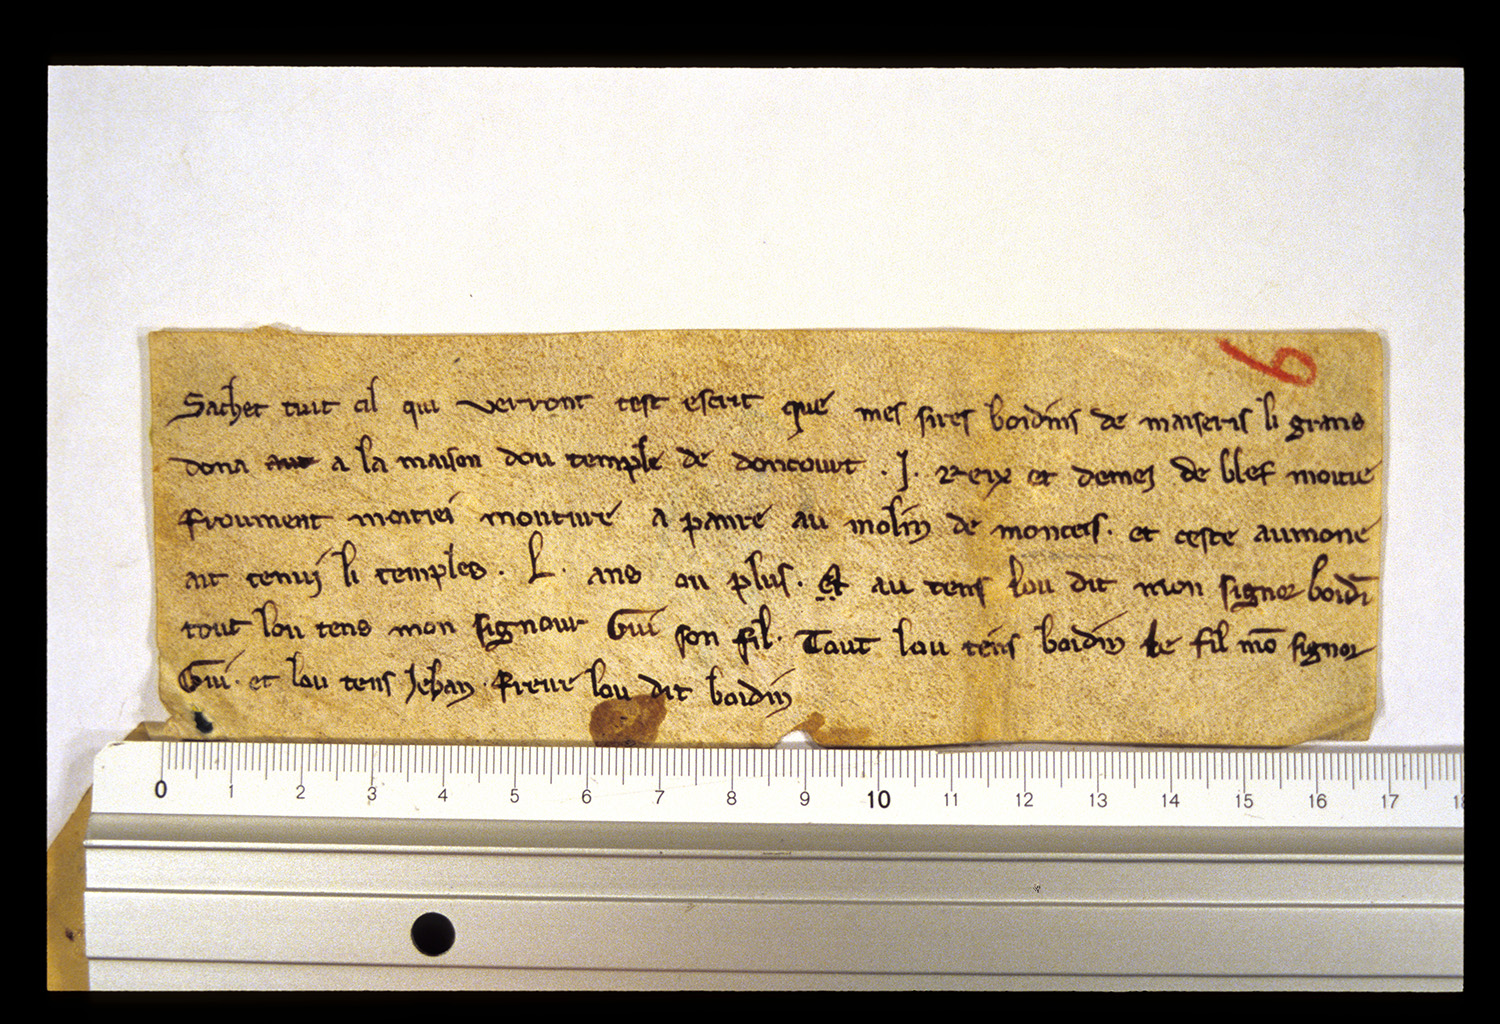 Sachet tuit cil qui verront cest escrit que mes sires boidins de maiseris li grans
dona a la maison dou temple de doncourt . J . reix et demei de blef moitie
froument moitiei mouture a panre au molin de monceis . et ceste aumone
ait tenui li temples . L . ans ou plus . Et au tens lou dit mon signor boidī
tout lou tens mon signour Gui son fil . Tout lou tens boidin le fil mō signor
Gui . et lou tens Jehan . frere lou dit boidin
6
0 1 2 3 4 5 6 7 8 9 10 11 12 13 14 15 16 17 18